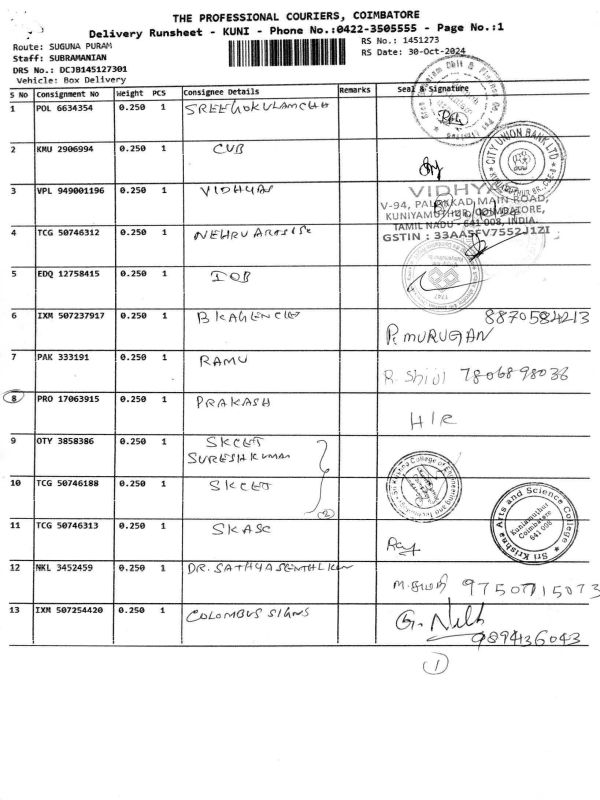 THE PROFESSIONAL COURIERS, COIMBATORE
Delivery Runsheet - KUNI - Phone No.:0422-3505555 - Page No.:1
Route: SUGUNA PURAM
RS No.: 1451273
Staff: SUBRAMANIAN
RS Date: 30-Oct-2024
DRS No.: DCJB145127301
Vehicle: Box Delivery
S No Consignment No Weight PCS Consignee Details Remarks Seal & Signature
1 POL 6634354 0.250 1
2 KMU 2906994 0.250 1 CUB
CITY UNION BANK LTD
KUNIAMUTHUR BR, CBE-8
3 VPL 949001196 0.250 1 VIDHYAS
VIDHYA
V-94, PALAKKAD MAIN ROAD,
KUNIYAMUTHUR, COIMBATORE,
TAMIL NADU - 641 008, INDIA.
GSTIN : 33AASFV7552J1ZI
4 TCG 50746312 0.250 1 NEHRU
5 EDQ 12758415 0.250 1 IOB
6 IXM 507237917 0.250 1 BKAGENCIES 8870584213
P. MURUGAN
7 PAK 333191 0.250 1 RAMU
R. Shiji 7806898038
8 PRO 17063915 0.250 1 PRAKASH
H/R
9 OTY 3858386 0.250 1 SKCET
SURESH KUMAR
Sri Krishna College of Engineering and Technology
10 TCG 50746188 0.250 1 SKCET
(2)
Sri Krishna Arts and Science College
Kuniamuthur
Coimbatore
641 008
11 TCG 50746313 0.250 1 SKASC
12 NKL 3452459 0.250 1 DR. SATHYASENTHIL
9750715073
13 IXM 507254420 0.250 1 COLOMBUS SIGNS
9894136043
1